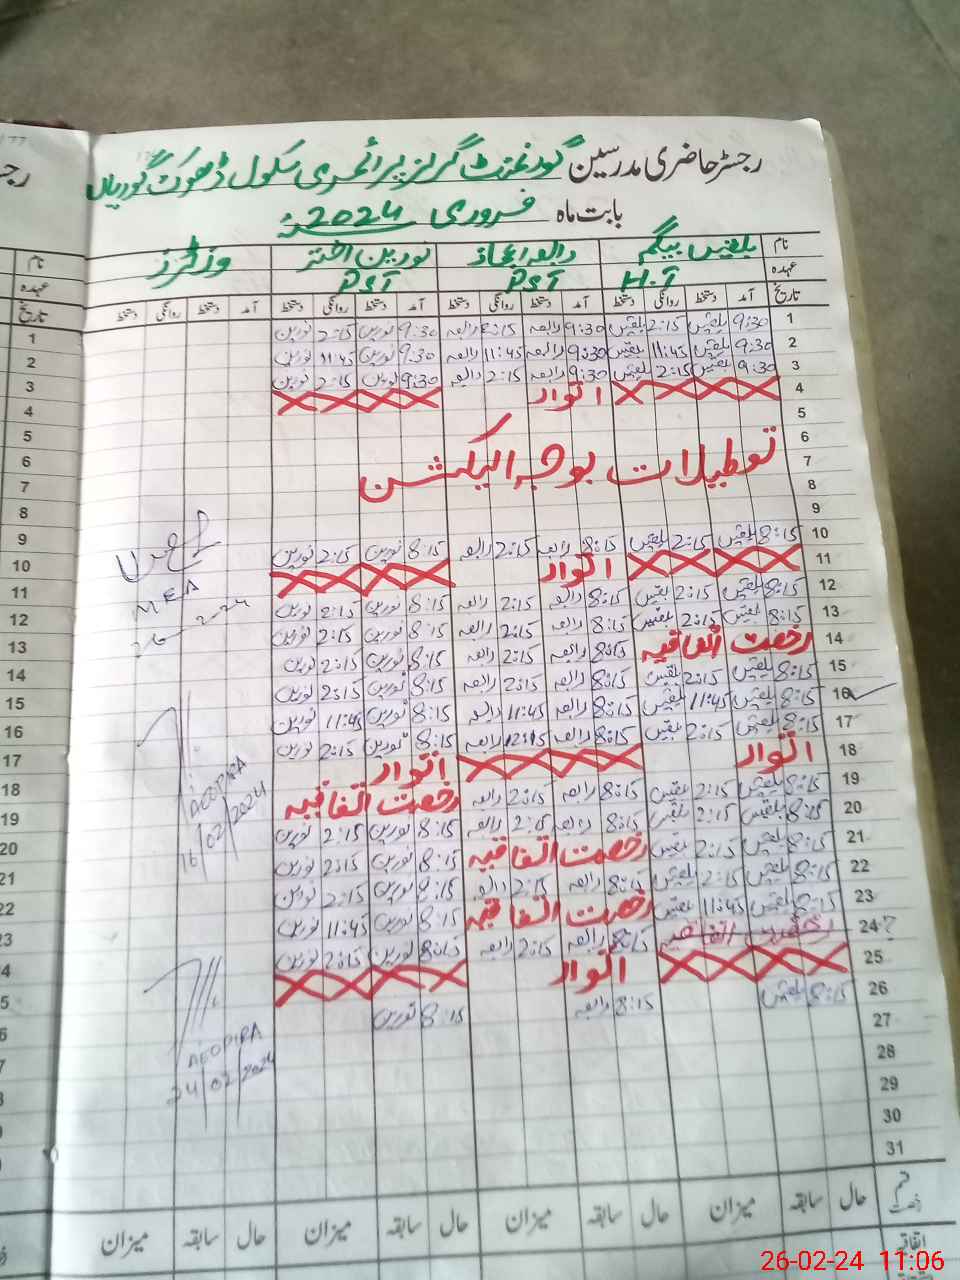 رجسٹر حاضری مدرسین گورنمنٹ گرلز پرائمری سکول ڈھوک گوریاں
بابت ماہ فروری 2024ء
نام بلقیس بیگم رابعہ اعجاز نورین اختر وزٹرز
عہدہ H.T PST PST
تاریخ آمد دستخط روانگی دستخط آمد دستخط روانگی دستخط آمد دستخط روانگی دستخط آمد دستخط روانگی دستخط
1 9:30 بلقیس 2:15 بلقیس 9:30 رابعہ 2:15 رابعہ 9:30 نورین 2:15 نورین
2 9:30 بلقیس 11:45 بلقیس 9:30 رابعہ 11:45 رابعہ 9:30 نورین 11:45 نورین
3 9:30 بلقیس 2:15 بلقیس 9:30 رابعہ 2:15 رابعہ 9:30 نورین 2:15 نورین
4 اتوار
5
6
7 توطیلات بوجہ الیکشن
8
9
10 8:15 بلقیس 2:15 بلقیس 8:15 رابعہ 2:15 رابعہ 8:15 نورین 2:15 نورین
11 اتوار
12 8:15 بلقیس 2:15 بلقیس 8:15 رابعہ 2:15 رابعہ 8:15 نورین 2:15 نورین
13 8:15 بلقیس 2:15 بلقیس 8:15 رابعہ 2:15 رابعہ 8:15 نورین 2:15 نورین
14 رخصت اتفاقیہ 8:15 رابعہ 2:15 رابعہ 8:15 نورین 2:15 نورین
15 8:15 بلقیس 2:15 بلقیس 8:15 رابعہ 2:15 رابعہ 8:15 نورین 2:15 نورین
16 8:15 بلقیس 11:45 بلقیس 8:15 رابعہ 11:45 رابعہ 8:15 نورین 11:45 نورین
17 8:15 بلقیس 2:15 بلقیس 8:15 رابعہ رابعہ 8:15 نورین 2:15 نورین
18 اتوار اتوار
19 8:15 بلقیس 2:15 بلقیس 8:15 رابعہ 2:15 رابعہ رخصت اتفاقیہ
20 8:15 بلقیس 2:15 بلقیس 8:15 رابعہ 2:15 رابعہ 8:15 نورین 2:15 نورین
21 8:15 بلقیس 2:15 بلقیس رخصت اتفاقیہ 8:15 نورین 2:15 نورین
22 8:15 بلقیس 2:15 بلقیس 8:15 رابعہ 2:15 رابعہ 8:15 نورین 2:15 نورین
23 8:15 بلقیس 11:45 بلقیس رخصت اتفاقیہ 8:15 نورین 11:45 نورین
24 ? رخصت اتفاقیہ 8:15 رابعہ 2:15 رابعہ 8:15 نورین 2:15 نورین
25 اتوار
26 8:15 بلقیس 8:15 رابعہ 8:15 نورین
27
28
29
30
31
MEA
AEO PIRA
16/02/2024
AEO PIRA
24/02/2024
قسم رخصت حال سابقہ میزان حال سابقہ میزان حال سابقہ میزان حال سابقہ میزان
اتفاقیہ
رجس
نام
عہدہ
تاریخ
1
2
3
4
5
6
7
8
9
10
11
12
13
14
15
16
17
18
19
20
21
22
23
26-02-24 11:06